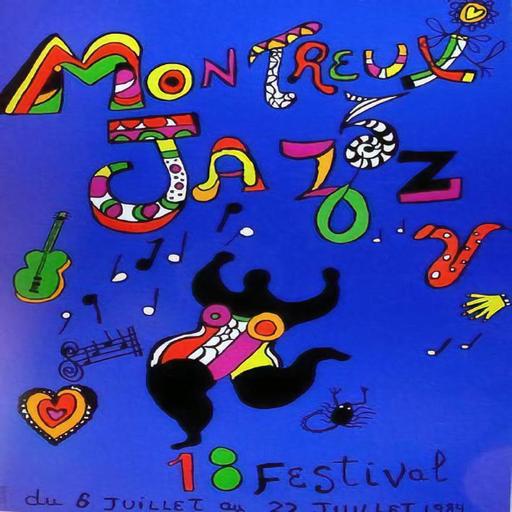 MONTREUX
JAZZ
18 FESTIVAL
du 6 JUILLET au 22 JUILLET 1984